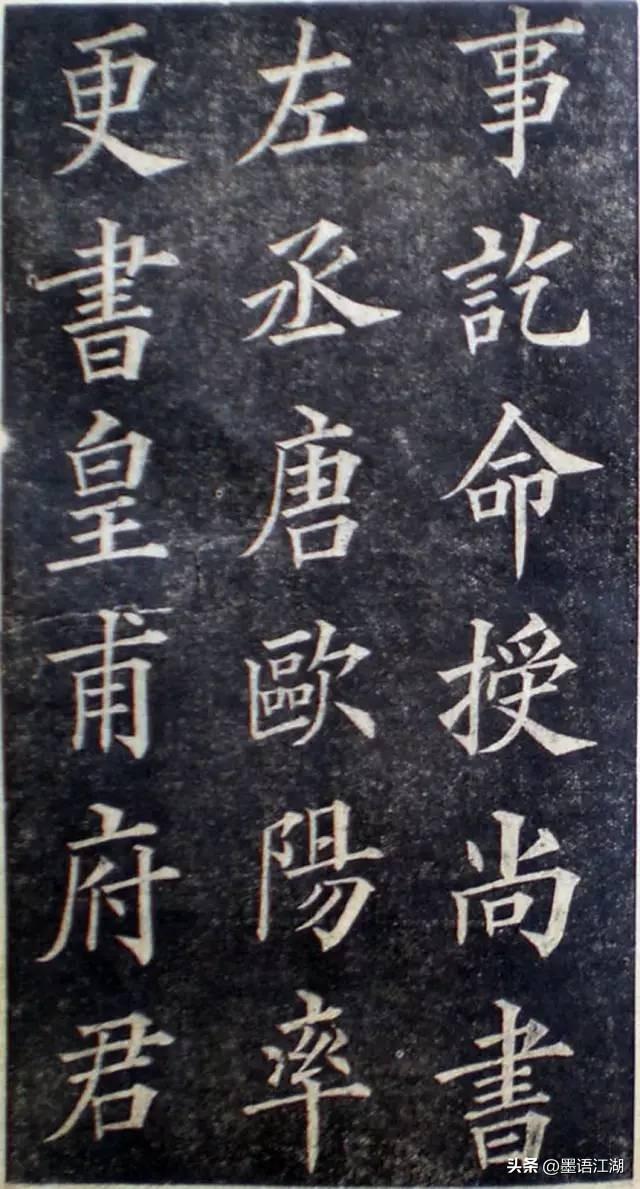 事訖命授尚書
左丞唐歐陽率
更書皇甫府君
头条 @墨语江湖